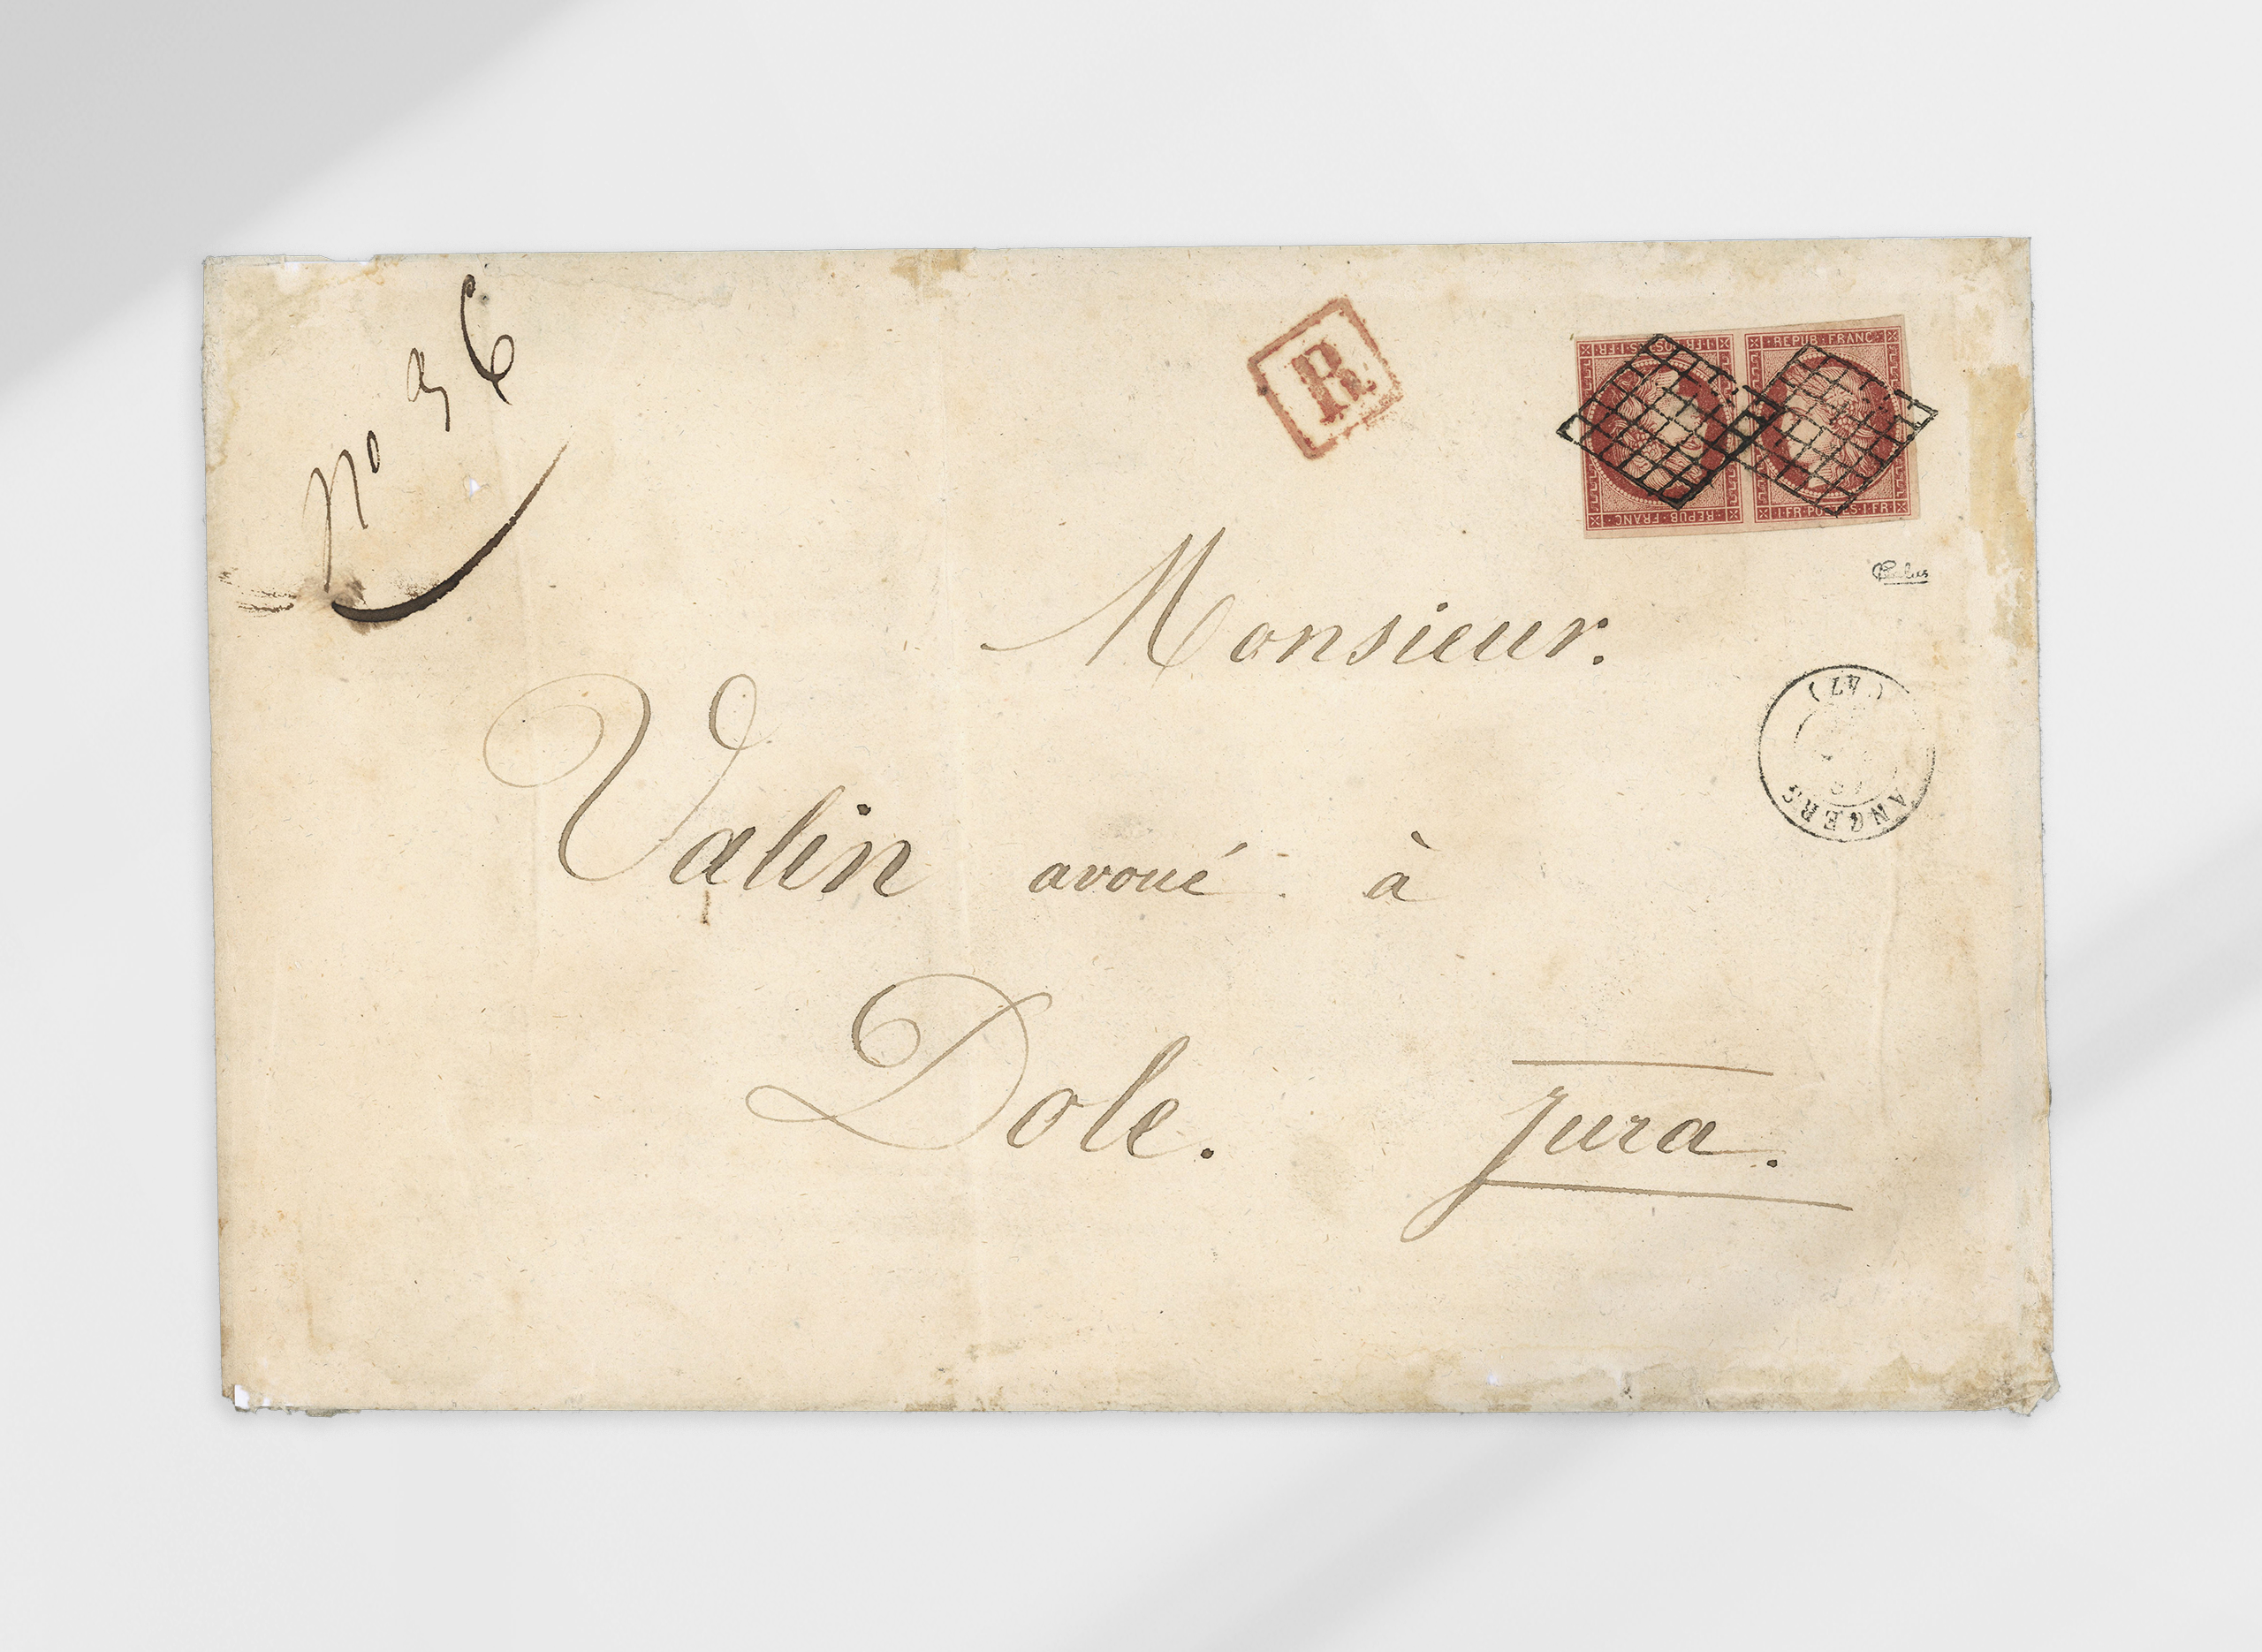 No 36
R
1·FR·POSTES·1·FR
REPUB·FRANC·
REPUB·FRANC
1·FR·POSTES·1·FR
Calves
Monsieur.
(47)
ANGERS
Valin avoué à
Dole. Jura.